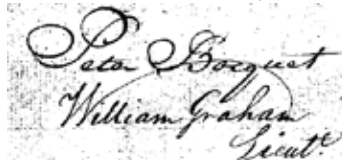 Peter Bocquet
William Graham
Lieut.